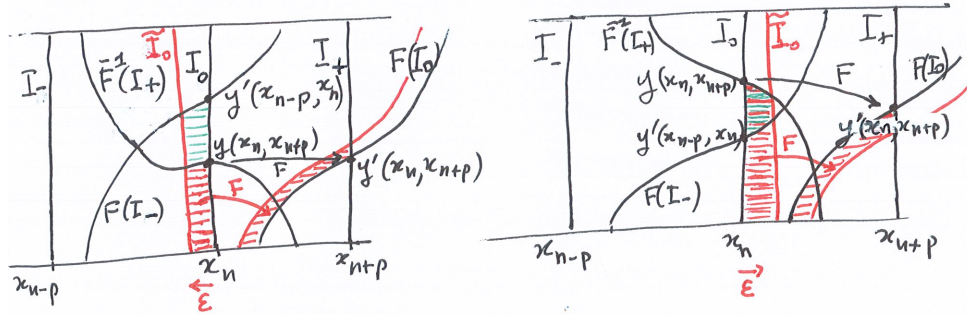 I_-
F^{-1}(I_+)
Ĩ_0
I_0
I_+
F(I_0)
y'(x_{n-p}, x_n)
y(x_n, x_{n+p})
F
y'(x_n, x_{n+p})
F
F(I_-)
x_{n-p}
x_n
x_{n+p}
ε
I_-
F^{-1}(I_+)
I_0
Ĩ_0
I_+
F
F(I_0)
y(x_n, x_{n+p})
y'(x_n, x_{n+p})
y'(x_{n-p}, x_n)
F
F(I_-)
x_{n-p}
x_n
x_{n+p}
ε